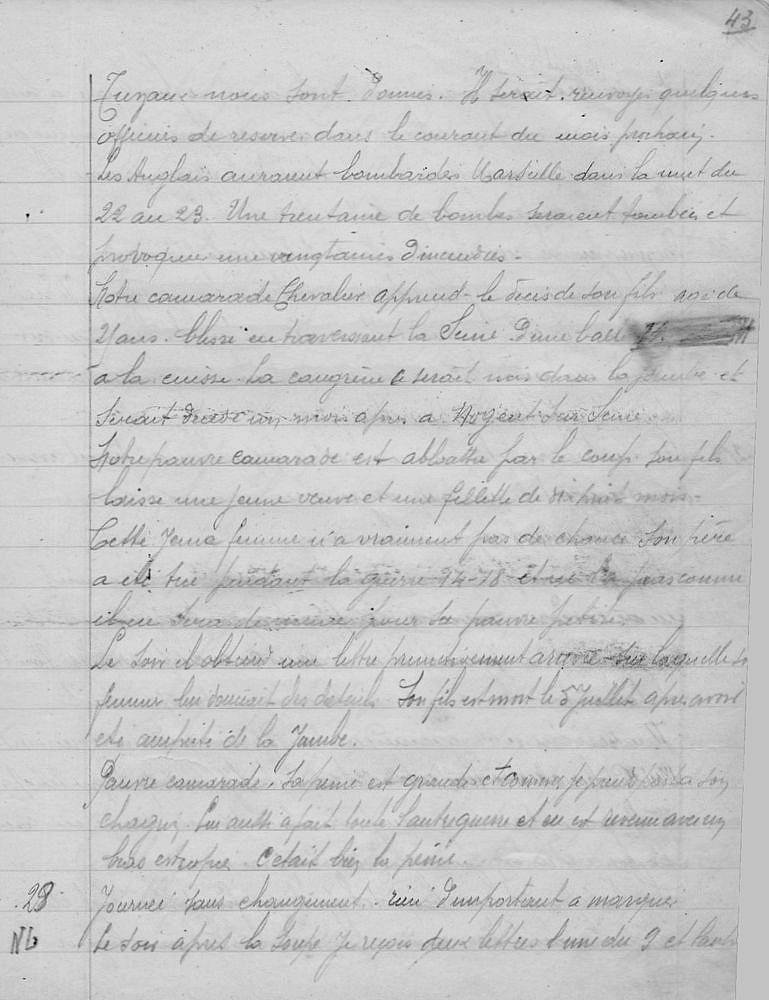 43
Tuyaux nous sont donnes. Il serait renvoyé quelques
officiers de reserve dans le courant du mois prochain.
Les Anglais auraient bombardes Marseille dans la nuit du
22 au 23. Une trentaine de bombes seraient tombées et
provoquer une vingtaines d'incendies.
Notre camarade Chevalier apprend le décès de son fils agé de
ans. blessé en traversant la Seine d'une balle
a la cuisse. La cangrène se serait mis dans la jambe et
serait décédé un mois apres a Nogent sur Seine
Notre pauvre camarade est abbattu par le coup. son fils
laisse une jeune veuve et une fillette de dix huit mois.
Cette jeune femme n'a vraiment pas de chance son père
a été tué pendant la guerre 14-18 et ne l'a pas connu
il en sera de même pour sa pauvre petite.
Le soir il obtient une lettre primitivement arrivée sur laquelle sa
femme lui donnait des details. Son fils est mort le 5 Juillet apres avoir
été amputé de la Jambe.
Pauvre camarade, sa peine est grande et comme je prend part a son
chagrin. Lui aussi a fait toute l'autre guerre et en est revenu avec un
bras estropié. C'etait bien la peine.
28 Journeé sans changement. rien d'important a marquer
Nb Le soir après la soupe Je reçois deux lettres l'une du 9 et l'autre